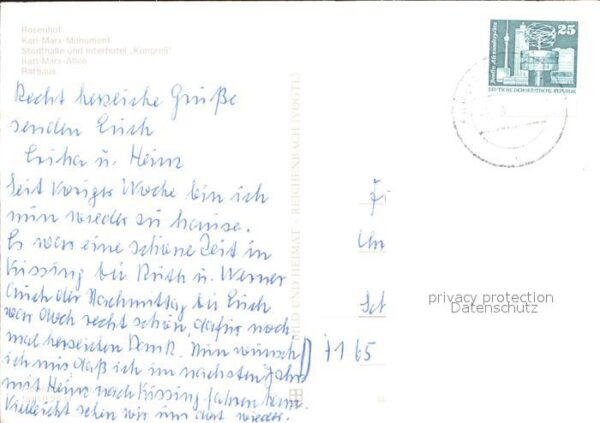 Rosenhof
Karl-Marx-Monument
Stadthalle und Interhotel „Kongreß"
Karl-Marx-Allee
Rathaus
25
Berlin, Alexanderplatz
DEUTSCHE DEMOKRATISCHE REPUBLIK
Recht herzliche Grüße
senden Euch
Erika u. Heinz
Seit voriger Woche bin ich
nun wieder zu hause.
Es war eine schöne Zeit in
Kissing bei Ruth u. Werner
auch der Nachmittag bei Euch
war doch recht schön, dafür noch
mal herzlichen Dank. Nun wünsch
ich mir, daß ich im nächsten Jahr
mit Heinz nach Kissing fahren kann.
Vielleicht sehen wir uns dort wieder.
BILD UND HEIMAT · REICHENBACH (VOGTL)
7165
privacy protection
Datenschutz